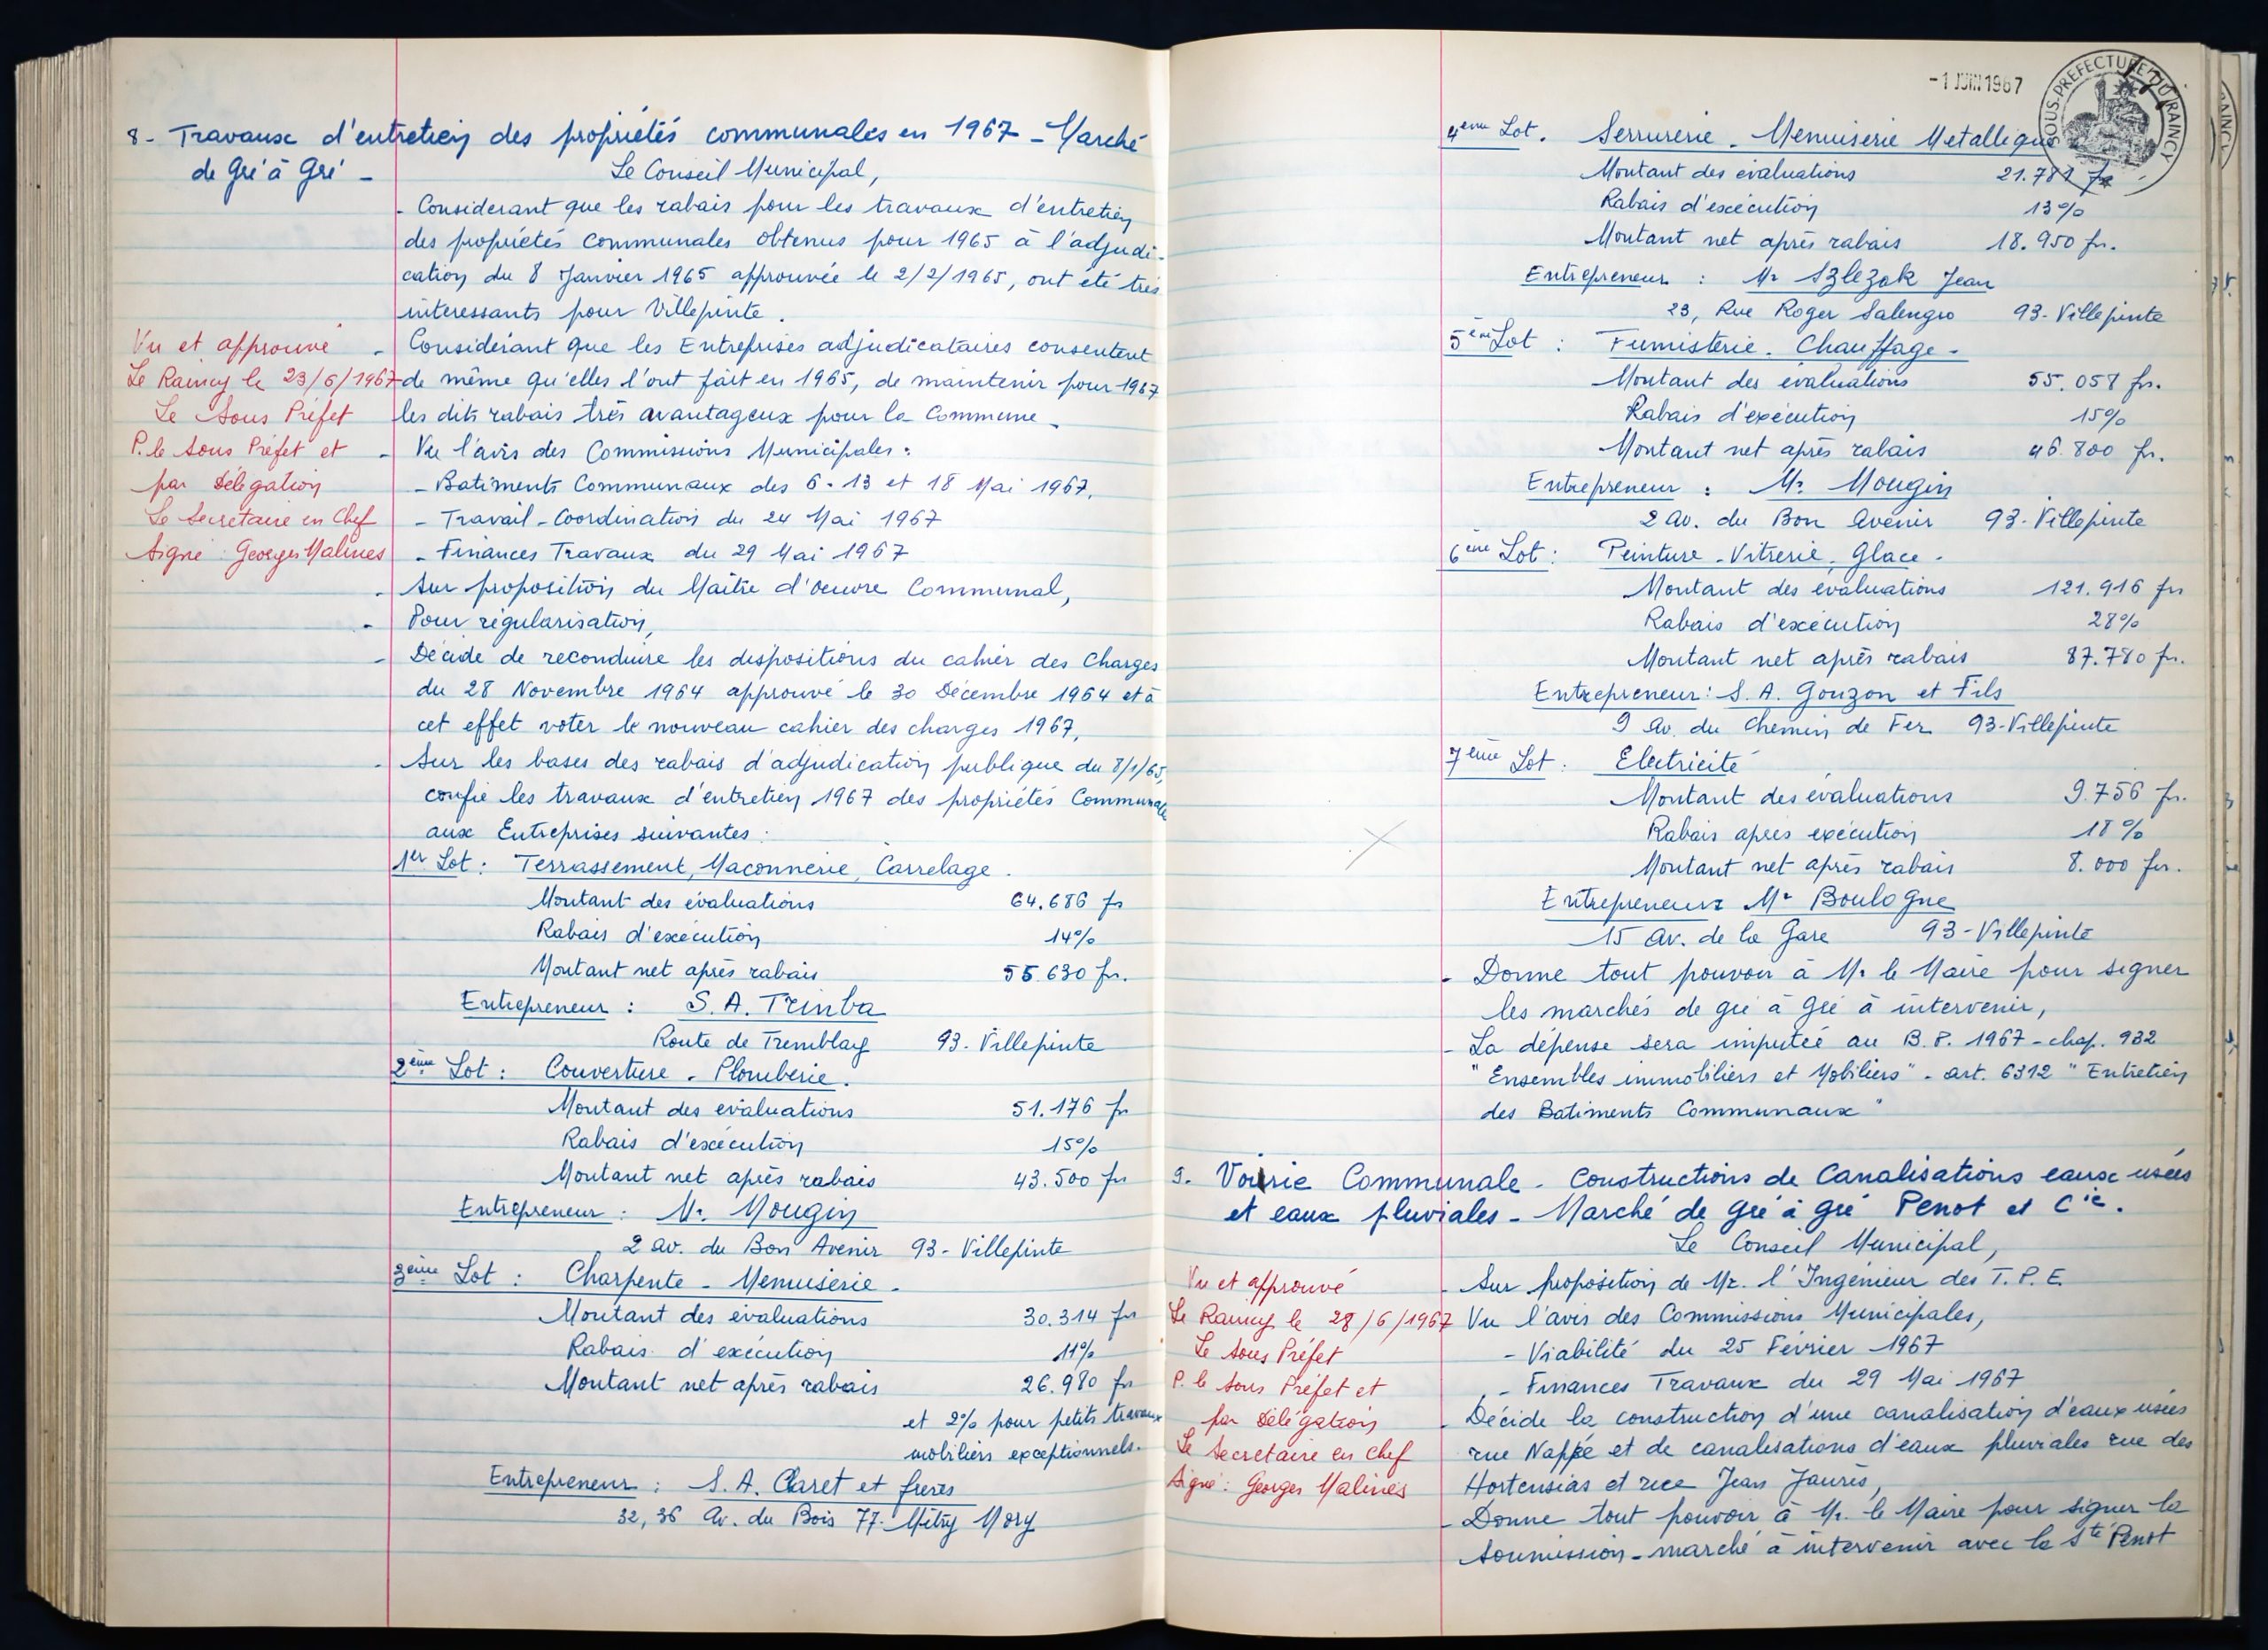 8 - Travaux d'entretien des propriétés communales en 1967 - Marché
de gré à gré -
Le Conseil Municipal,
- Considerant que les rabais pour les travaux d'entretien
des propriétés communales obtenus pour 1965 à l'adjudi-
cation du 8 Janvier 1965 approuvée le 2/2/1965, ont été très
interessants pour Villepinte.
- Considérant que les Entreprises adjudicataires consentent
de même qu'elles l'ont fait en 1965, de maintenir pour 1967
les dits rabais très avantageux pour la Commune.
- Vu l'avis des Commissions Municipales :
- Batiments Communaux des 6 - 13 et 18 Mai 1967,
- Travail - Coordination du 24 Mai 1967
- Finances Travaux du 29 Mai 1967
- Sur proposition du Maitre d'oeuvre Communal,
- Pour régularisation,
- Décide de reconduire les dispositions du cahier des Charges
du 28 Novembre 1964 approuvé le 30 Décembre 1964 et à
cet effet voter le nouveau cahier des charges 1967,
- Sur les bases des rabais d'adjudication publique du 8/1/65,
confie les travaux d'entretien 1967 des propriétés Communales
aux Entreprises suivantes :
Vu et approuvé
Le Raincy le 23/6/1967
Le Sous Préfet
P. le Sous Préfet et
par Délégation
Le Secrétaire en Chef
Signé : Georges Malines
1er Lot : Terrassement, Maconnerie, Carrelage.
Montant des évaluations 64.686 fr
Rabais d'exécution 14%
Montant net après rabais 55.630 fr.
Entrepreneur : S.A. Trinba
Route de Tremblay 93. Villepinte
2ème Lot : Couverture - Plomberie.
Montant des évaluations 51.176 fr
Rabais d'exécution 15%
Montant net après rabais 43.500 fr
Entrepreneur : Mr. Mougin
2 av. du Bon Avenir 93 - Villepinte
3ème Lot : Charpente - Menuiserie -
Montant des évaluations 30.314 fr
Rabais d'exécution 11%
Montant net après rabais 26.980 fr
et 2% pour petits travaux
mobiliers exceptionnels.
Entrepreneur : S.A. Claret et frères
32, 36 Av. du Bois 77. Mitry Mory
-1 JUIN 1967
SOUS-PREFECTURE DU RAINCY
4ème Lot. Serrurerie - Menuiserie Metallique
Montant des évaluations 21.781 fr
Rabais d'exécution 13%
Montant net après rabais 18.950 fr.
Entrepreneur : Mr Szlezak Jean
23, Rue Roger Salengro 93 - Villepinte
5ème Lot : Fumisterie - Chauffage -
Montant des évaluations 55.058 fr.
Rabais d'exécution 15%
Montant net après rabais 46.800 fr.
Entrepreneur : Mr. Mougin
2 av. du Bon Avenir 93 - Villepinte
6ème Lot : Peinture - Vitrerie - Glace -
Montant des évaluations 121.916 fr
Rabais d'exécution 28%
Montant net après rabais 87.780 fr.
Entrepreneur : S.A. Gouzon et Fils
9 av. du Chemin de Fer 93 - Villepinte
7ème Lot : Electricité
Montant des évaluations 9.756 fr.
Rabais apres exécution 18%
Montant net après rabais 8.000 fr.
Entrepreneur Mr Boulogne
15 av. de la Gare 93 - Villepinte
- Donne tout pouvoir à Mr le Maire pour signer
les marchés de gré à gré à intervenir,
- La dépense sera imputée au B.P. 1967 - chap. 932
"Ensembles immobiliers et Mobiliers" - art. 6312 "Entretien
des Batiments Communaux"
9. Voirie Communale - Constructions de Canalisations eaux usées
et eaux pluviales - Marché de gré à gré Penot et Cie.
Le Conseil Municipal,
- Sur proposition de Mr. l'Ingénieur des T.P.E.
Vu l'avis des Commissions Municipales,
- Viabilité du 25 Février 1967
- Finances Travaux du 29 Mai 1967
- Décide la construction d'une canalisation d'eaux usées
rue Nappée et de canalisations d'eaux pluviales rue des
Hortensias et rue Jean Jaurès,
- Donne tout pouvoir à Mr. le Maire pour signer la
soumission - marché à intervenir avec la Sté Penot
Vu et approuvé
Le Raincy le 28/6/1967
Le Sous Préfet
P. le Sous Préfet et
par Délégation
Le Secretaire en Chef
Signé : Georges Malines